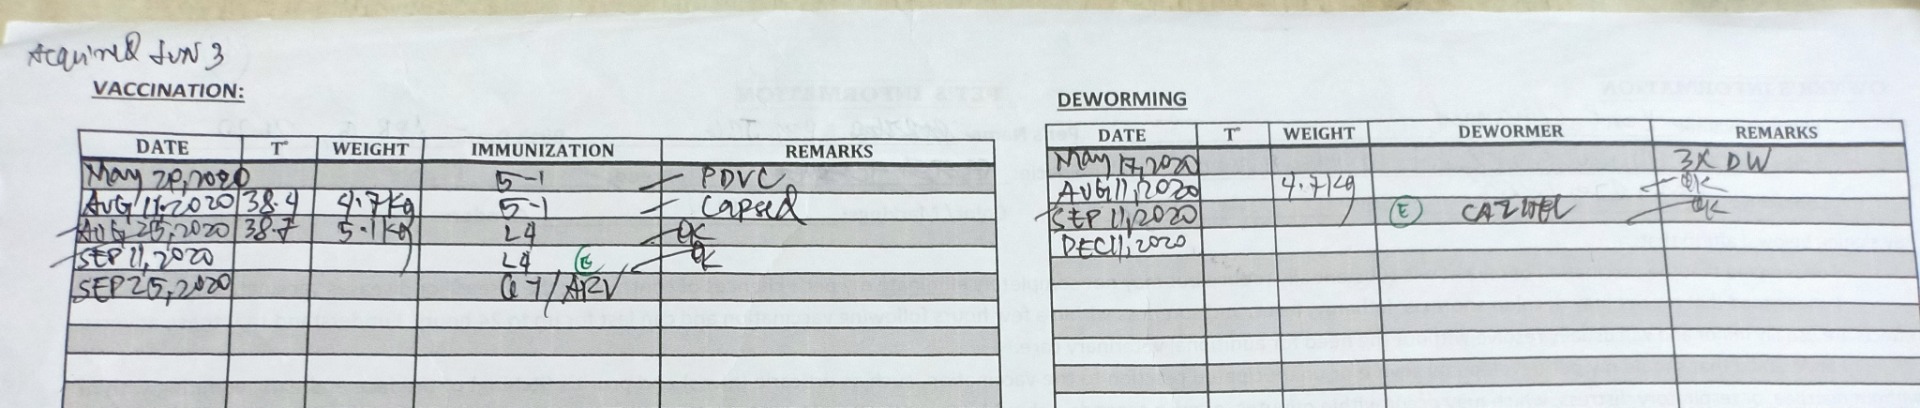 Acquired JUN 3
VACCINATION:
DATE T WEIGHT IMMUNIZATION REMARKS
May 20, 2020 5-1 PDVC
AUG 11, 2020 38.4 4.7 Kg 5-1 Lapsed
AUG 25, 2020 38.7 5.1 Kg L4 OK
SEP 11, 2020 L4 E OK
SEP 25, 2020 6-1/ARV
DEWORMING
DATE T WEIGHT DEWORMER REMARKS
May 17, 2020 3X DW
AUG 11, 2020 4.7 Kg OK
SEP 11, 2020 E OK
DEC 11, 2020